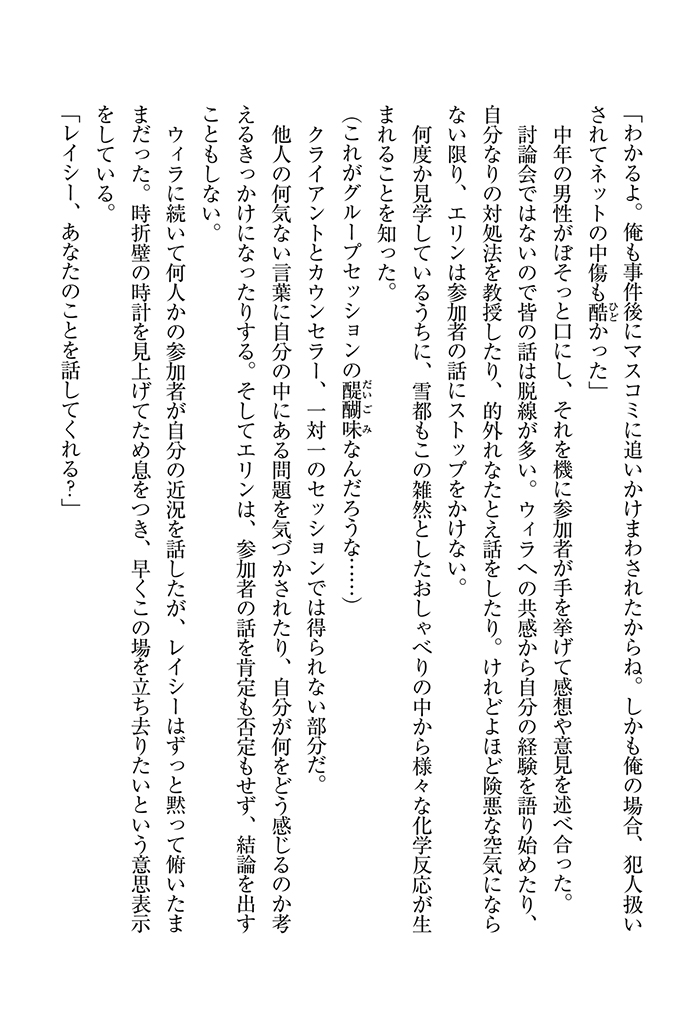 「わかるよ。俺も事件後にマスコミに追いかけまわされたからね。しかも俺の場合、犯人扱い
されてネットの中傷も酷かった」
中年の男性がぼそっと口にし、それを機に参加者が手を挙げて感想や意見を述べ合った。
討論会ではないので皆の話は脱線が多い。ウィラへの共感から自分の経験を語り始めたり、
自分なりの対処法を教授したり、的外れなたとえ話をしたり。けれどよほど険悪な空気になら
ない限り、エリンは参加者の話にストップをかけない。
何度か見学しているうちに、雪都もこの雑然としたおしゃべりの中から様々な化学反応が生
まれることを知った。
（これがグループセッションの醍醐味なんだろうな……）
クライアントとカウンセラー、一対一のセッションでは得られない部分だ。
他人の何気ない言葉に自分の中にある問題を気づかされたり、自分が何をどう感じるのか考
えるきっかけになったりする。そしてエリンは、参加者の話を肯定も否定もせず、結論を出す
こともしない。
ウィラに続いて何人かの参加者が自分の近況を話したが、レイシーはずっと黙って俯いたま
まだった。時折壁の時計を見上げてため息をつき、早くこの場を立ち去りたいという意思表示
をしている。
「レイシー、あなたのことを話してくれる？」